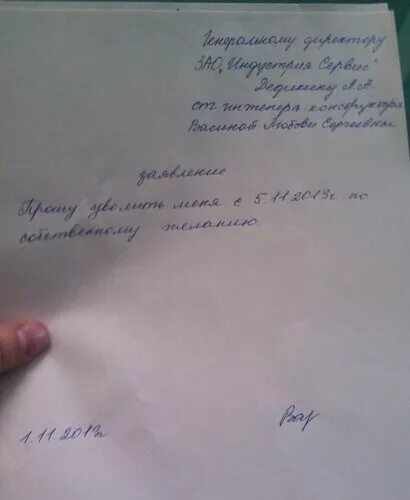 Генеральному директору
ЗАО „Индустрия Сервис"
Дедикину А.А.
от инженера-конструктора
Васиной Любови Сергеевны
заявление
Прошу уволить меня с 5.11.2013г по
собственному желанию.
1.11.2013г
Вас